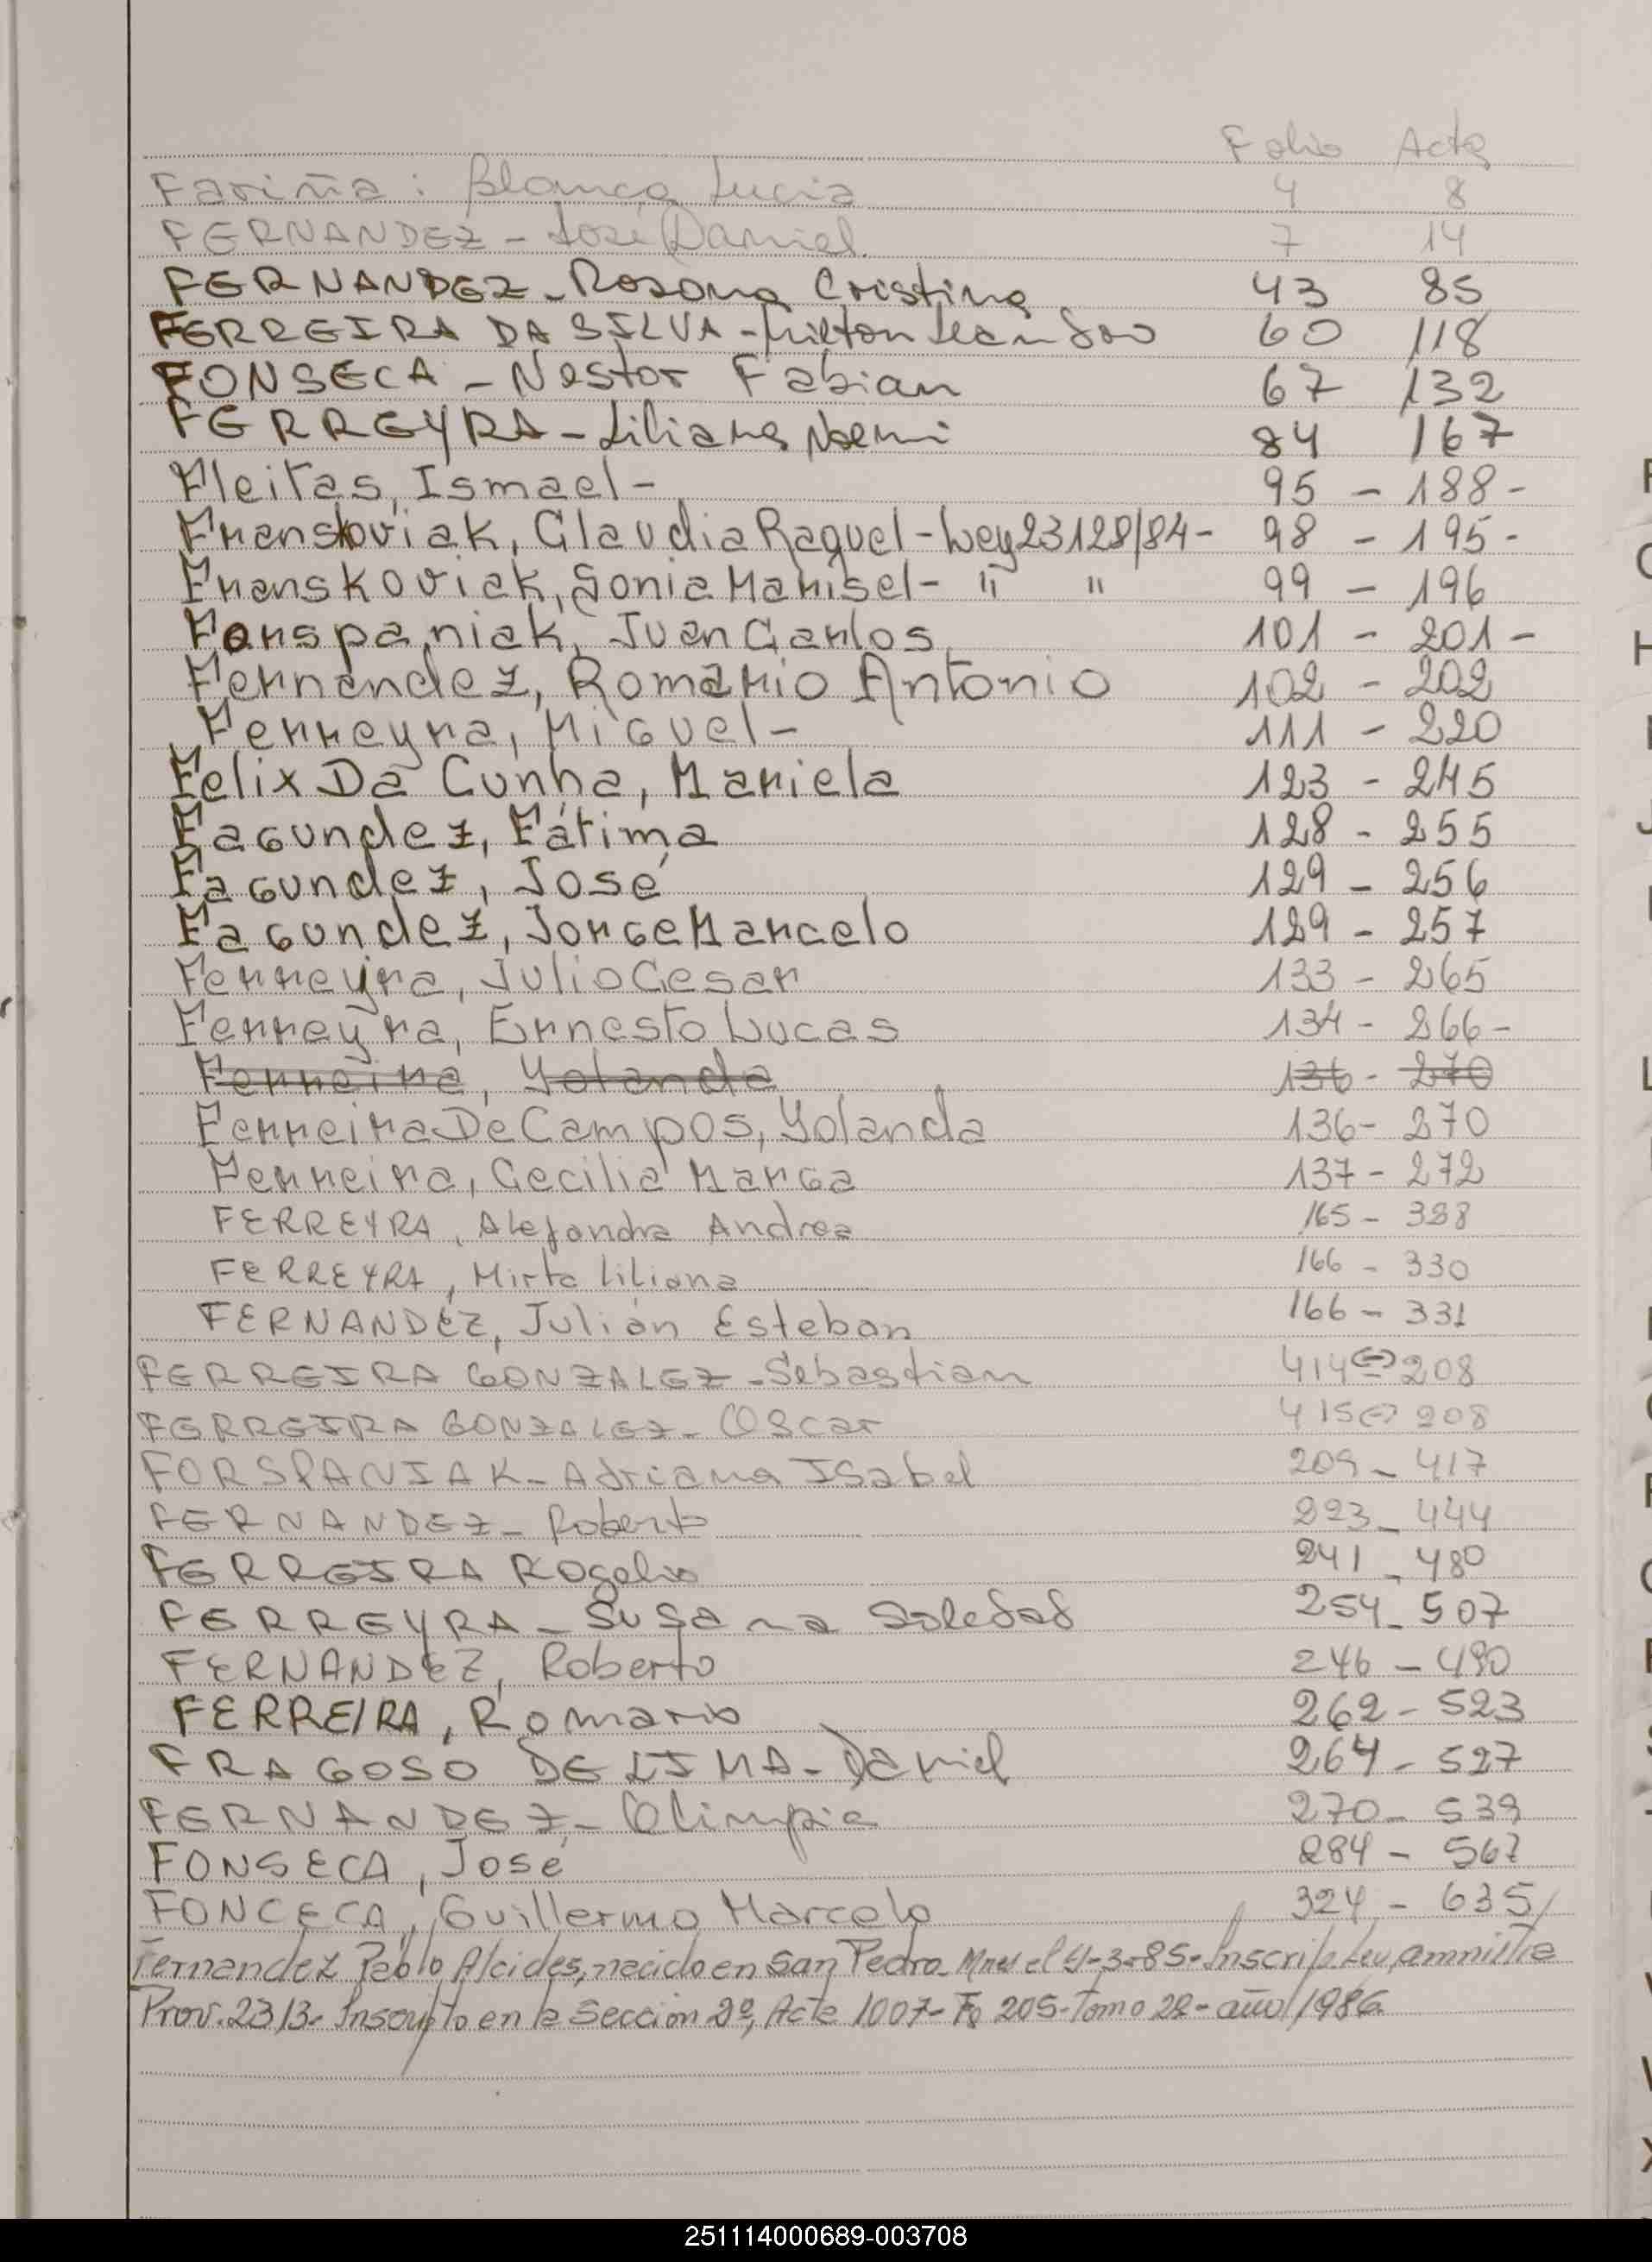 Folio Acta
Fariña: Blanca Lucia 4 8
FERNANDEZ - José Daniel 7 14
FERNANDEZ - Rosana Cristina 43 85
FERREIRA DA SILVA - Milton Leandro 60 118
FONSECA - Nestor Fabian 67 132
FERREYRA - Liliana Noemi 84 167
Fleitas, Ismael - 95 - 188 -
Franskoviak, Claudia Raquel - Ley 23128/84 - 98 - 195 -
Franskoviak, Sonia Marisel - " " 99 - 196
Forspaniak, Juan Carlos 101 - 201 -
Fernandez, Romario Antonio 102 - 202
Ferreyra, Miguel - 111 - 220
Felix Da Cunha, Mariela 123 - 245
Fagundez, Fátima 128 - 255
Fagundez, José 129 - 256
Fagundez, Jorge Marcelo 129 - 257
Ferreyra, Julio Cesar 133 - 265
Ferreyra, Ernesto Lucas 134 - 266 -
Ferreira, Yolanda 136 - 270
Ferreira De Campos, Yolanda 136 - 270
Ferreira, Cecilia Marga 137 - 272
FERREYRA, Alejandra Andrea 165 - 328
FERREYRA, Mirta Liliana 166 - 330
FERNANDEZ, Julián Esteban 166 - 331
FERREIRA GONZALEZ - Sebastian 414 <-> 208
FERREIRA GONZALEZ - Oscar 415 <-> 208
FORSPANIAK - Adriana Isabel 209 - 417
FERNANDEZ - Roberto 223 - 444
FERREIRA Rogelio 241 - 480
FERREYRA - Susana Soledad 254 - 507
FERNANDEZ, Roberto 246 - 490
FERREIRA, Romario 262 - 523
FRAGOSO DE LIMA - Daniel 264 - 527
FERNANDEZ - Olimpia 270 - 539
FONSECA, José 284 - 567
FONCECA, Guillermo Marcelo 324 - 635/
Fernandez Pablo Alcides, nacido en San Pedro Mnes el 4-3-85 - Inscrip Ley amnistia
Prov. 2313 - Inscripto en la Sección 2ª, Acta 1007 - Fº 205 - Tomo 2º - año 1986
251114000689-003708